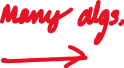 Many algs.